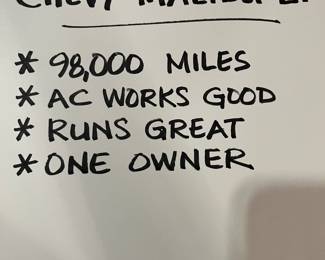 CHEVY MALIBU
* 98,000 MILES
* AC WORKS GOOD
* RUNS GREAT
* ONE OWNER